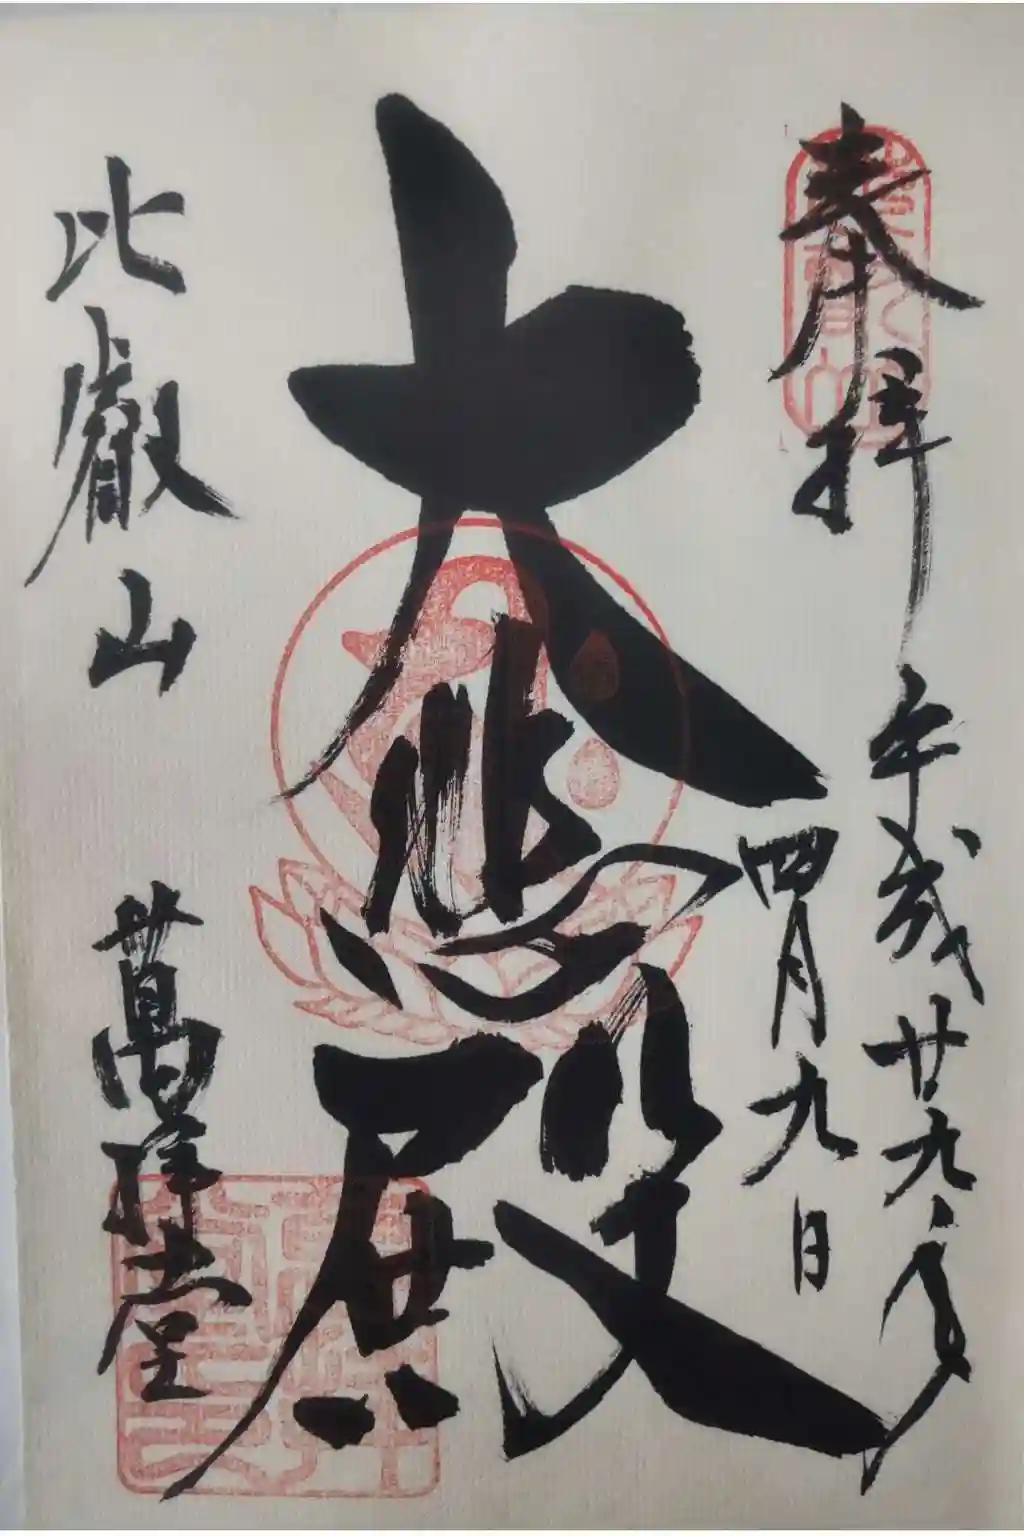 奉拝
平成廿九年
四月九日
大悲殿
比叡山
萬拝堂